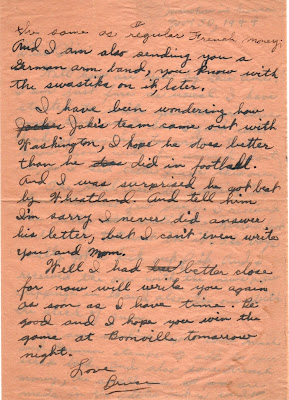 the same as regular French money;
And I am also sending you a
German arm band, you know with
the swastika on it, later.
I have been wondering how
Jake's team came out with
Washington, I hope he does better
than he did in football.
And I was surprised he got beat
by Wheatland. And tell him
I'm sorry I never did answer
his letter, but I can't even write
you and Mom.
Well I had better close
for now will write you again
as soon as I have time. Be
good and I hope you win the
game at Boonville tomorrow
night.
Love
Bruce